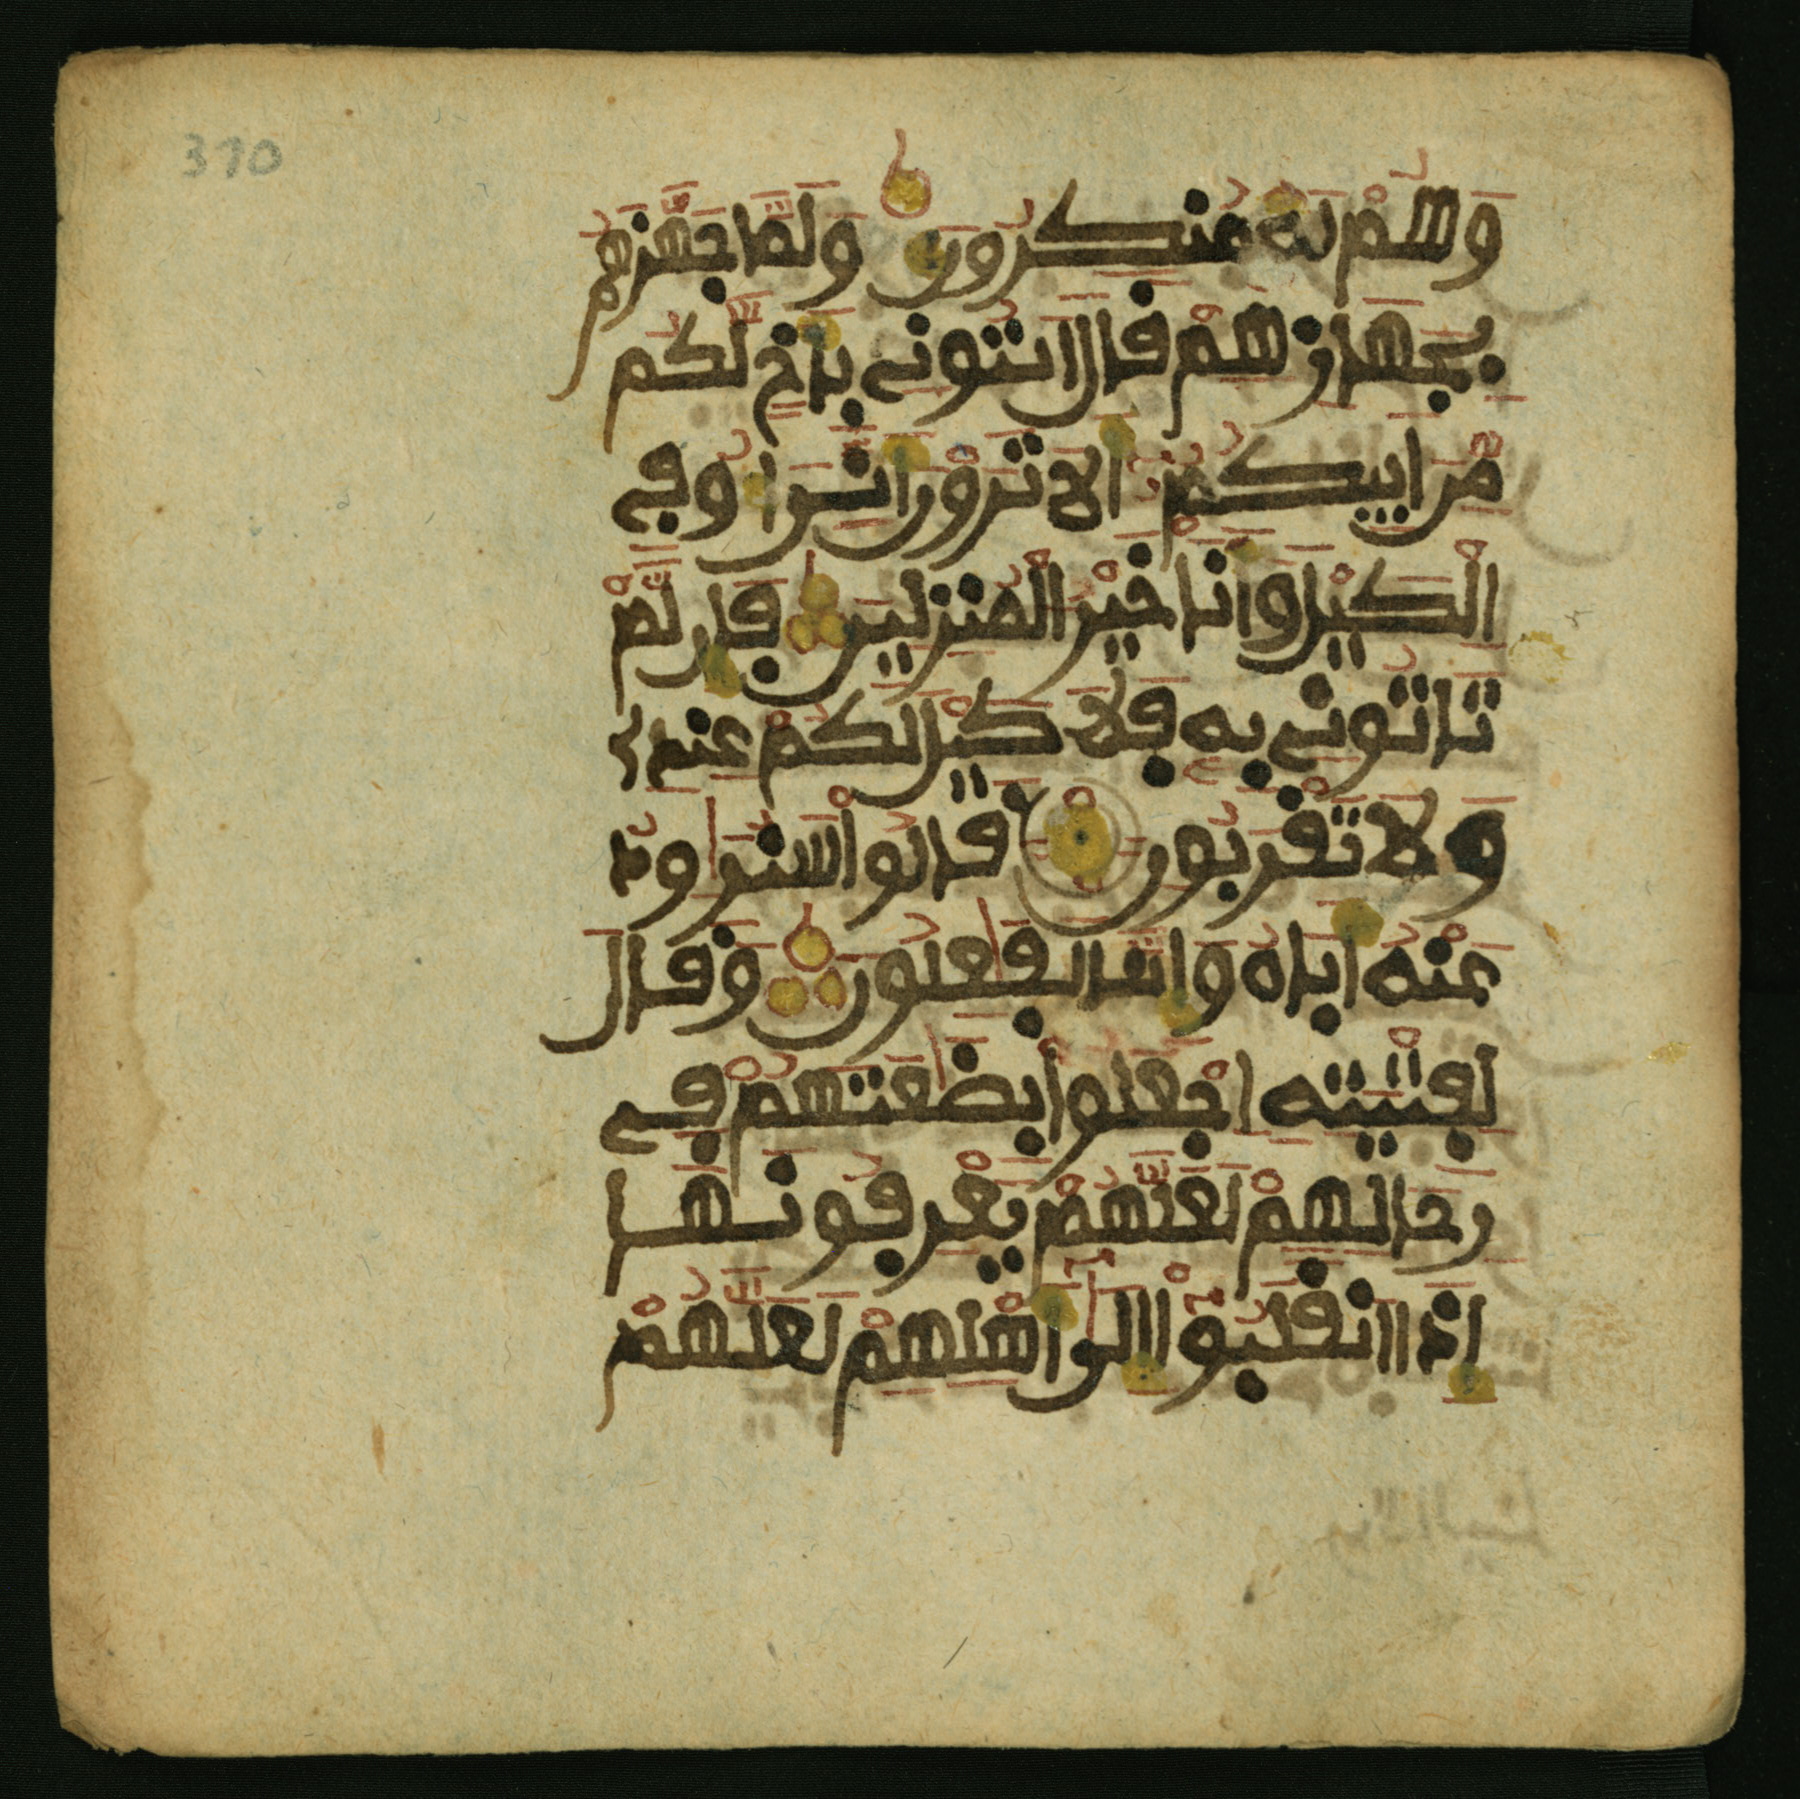 310
وهم له منكرون ولما جهزهم
بجهازهم قال ايتوني باخ لكم
من ابيكم الا ترون اني او في
الكيل وانا خير المنزلين فان لم
تاتوني به فلا كيل لكم عندي
ولا تقربون قالوا سنراود
عنه اباه وانا لفعلون وقال
لفتيته اجعلوا بضعتهم في
رحالهم لعلهم يعرفونها
اذا انقلبوا الى اهلهم لعلهم